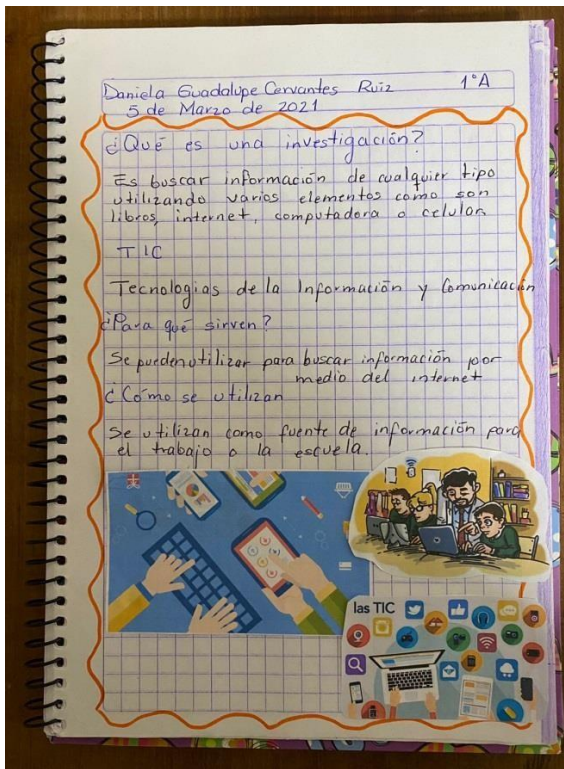 Daniela Guadalupe Cervantes Ruiz 1°A
5 de Marzo de 2021
¿Qué es una investigación?
Es buscar información de cualquier tipo
utilizando varios elementos como son
libros, internet, computadora o celular.
TIC
Tecnologias de la Información y Comunicación
¿Para qué sirven?
Se pueden utilizar para buscar información por
medio del internet
¿Cómo se utilizan
Se utilizan como fuente de información para
el trabajo o la escuela.
las TIC